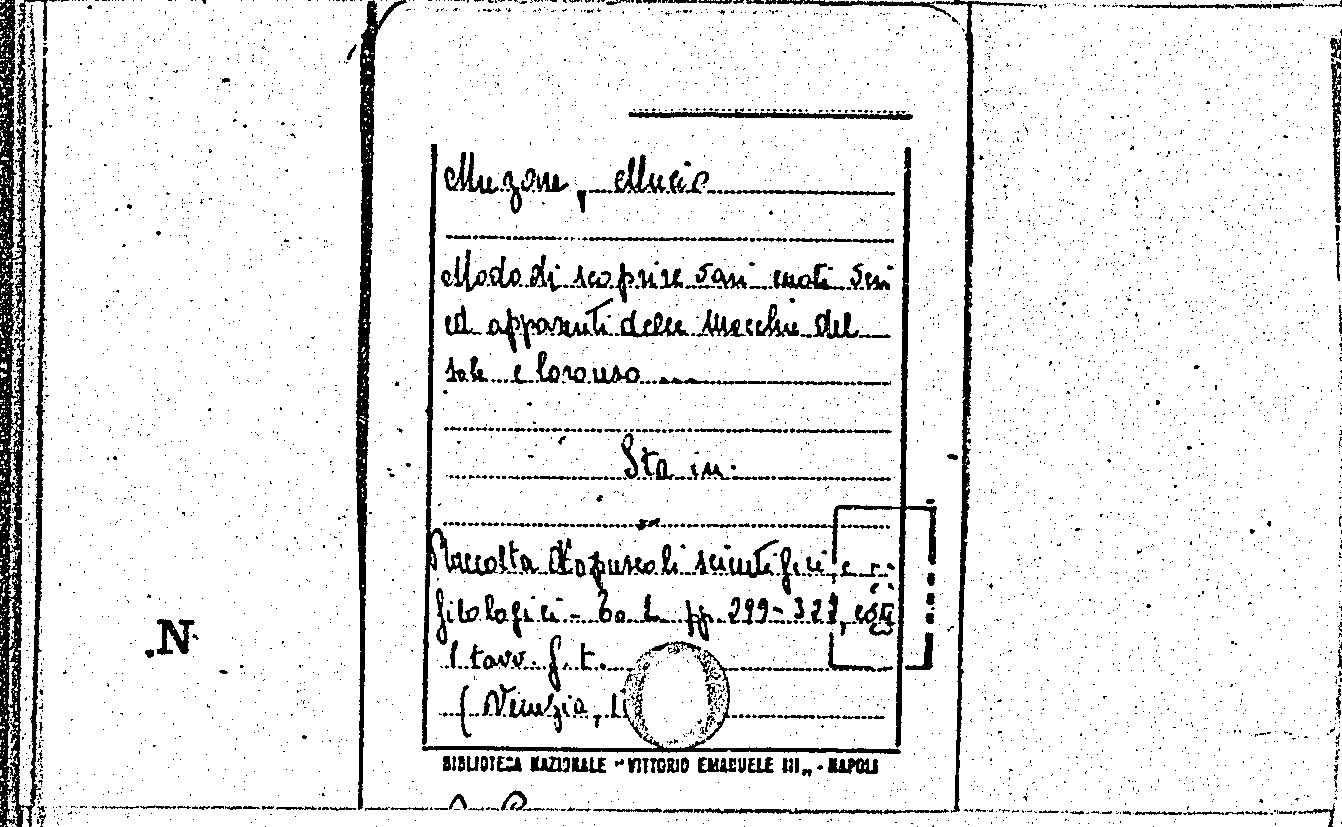 Muzone, Mucio
Modo di scoprire vari moti veri
ed apparenti delle macchie del
sole e loro uso ...
Sta in:
Raccolta d'opuscoli scientifici e
filologici - To. L pp. 299-322, con
1 tavv. f. t.
(Venezia,
BIBLIOTECA NAZIONALE "VITTORIO EMANUELE III„ - NAPOLI
.N